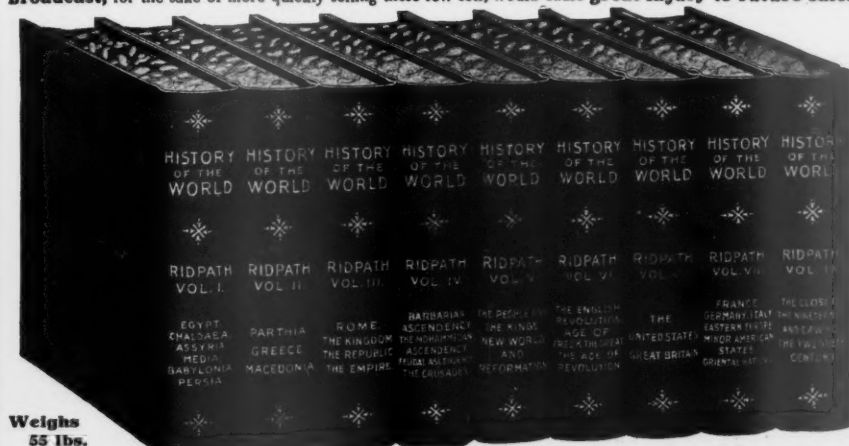 Broadcast, for the sake of more quickly selling these few sets, would cause great injury to future sales
HISTORY
OF THE
WORLD
RIDPATH
VOL. I.
EGYPT
CHALDAEA
ASSYRIA
MEDIA
BABYLONIA
PERSIA
HISTORY
OF THE
WORLD
RIDPATH
VOL. II.
PARTHIA
GREECE
MACEDONIA
HISTORY
OF THE
WORLD
RIDPATH
VOL. III.
ROME.
THE KINGDOM
THE REPUBLIC
THE EMPIRE
HISTORY
OF THE
WORLD
RIDPATH
VOL. IV.
BARBARIAN
ASCENDENCY
THE MOHAMMEDAN
ASCENDENCY
FEUDAL ASCENDENCY
THE CRUSADES
HISTORY
OF THE
WORLD
RIDPATH
VOL. V
THE PEOPLE AND
THE KINGS
NEW WORLD
AND
REFORMATION
HISTORY
OF THE
WORLD
RIDPATH
VOL. VI.
THE ENGLISH
REVOLUTION
AGE OF
THE GREAT
THE AGE OF
REVOLUTION
HISTORY
OF THE
WORLD
RIDPATH
VOL.
THE
UNITED STATES
GREAT BRITAIN
HISTORY
OF THE
WORLD
RIDPATH
VOL. VIII
FRANCE
GERMANY, ITALY
EASTERN EUROPE
MINOR AMERICAN
STATES
ORIENTAL NATIONS
HISTORY
OF THE
WORLD
RIDPATH
VOL.
THE CLOSE OF
THE NINETEENTH
AND DAWN OF
THE TWENTIETH
CENTURY
Weighs
55 lbs.